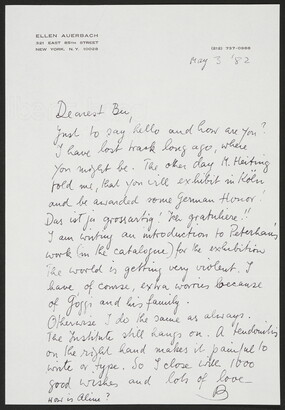 ELLEN AUERBACH
321 EAST 69TH STREET
NEW YORK, N.Y. 10028
(212) 737-0666
May 3 '82
Dearest Bu,
Just to say hello and how are you?
I have lost track long ago, where
you might be. The other day M. Heiting
told me, that you will exhibit in Köln
and be awarded some German Honor!
Das ist ja grossartig! Ich gratuliere!!
I am writing an introduction to Peterhans
work (in the catalogue) for the exhibition
The world is getting very violent. I
have of course, extra worries because
of Goggi and his family.
Otherwise I do the same as always.
The Institute still hangs on. A tendonitis
on the right hand makes it painful to
write or type. So I close with 1000
good wishes and lots of love
How is Aline?